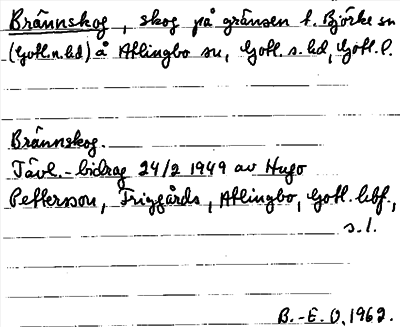 Brännskog, skog på gränsen t. Björke sn
(Gotl. n. hd) å Atlingbo sn, Gotl. s. hd, Gotl. l.
Brännskog.
Tävl.-bidrag 24/2 1949 av Hugo
Pettersson, Friggårds, Atlingbo, Gotl. hbf.,
s. l.
B.-E. O. 1962.